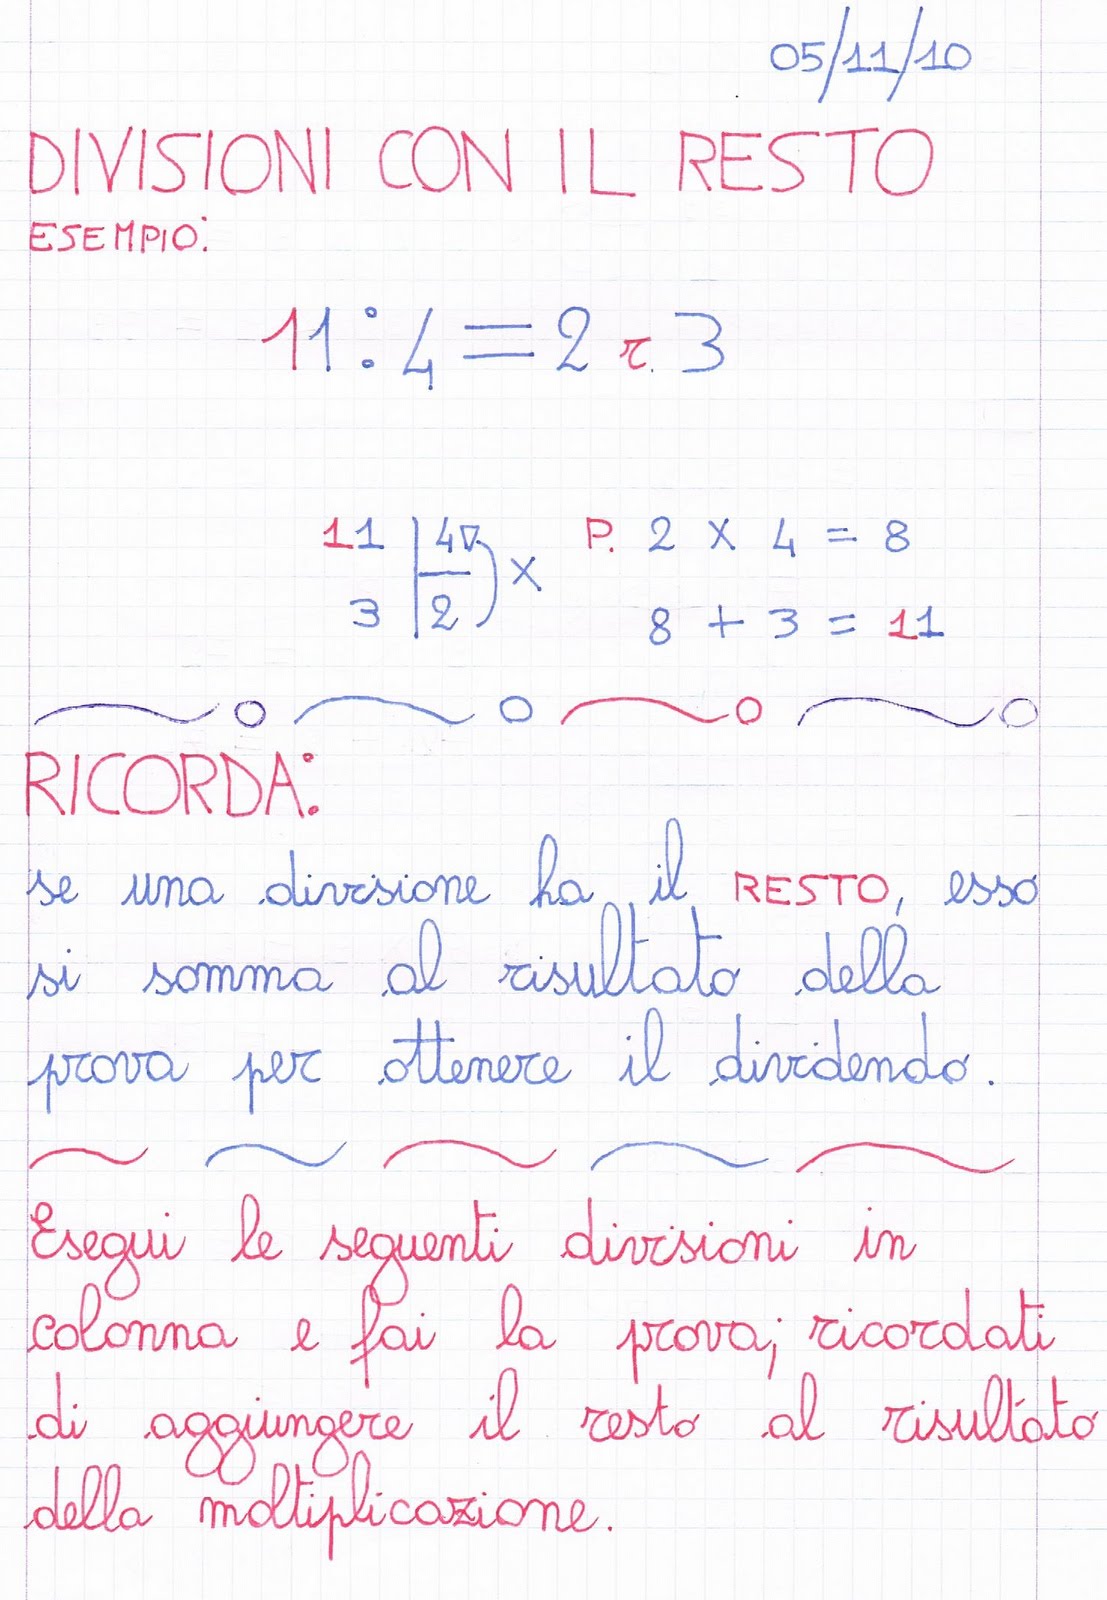 05/11/10
DIVISIONI CON IL RESTO
ESEMPIO:
11:4=2 r. 3
11 | 4 P. 2 X 4 = 8
3 | 2 X 8 + 3 = 11
RICORDA:
se una divisione ha il RESTO, esso
si somma al risultato della
prova per ottenere il dividendo.
Esegui le seguenti divisioni in
colonna e fai la prova; ricordati
di aggiungere il resto al risultato
della moltiplicazione.